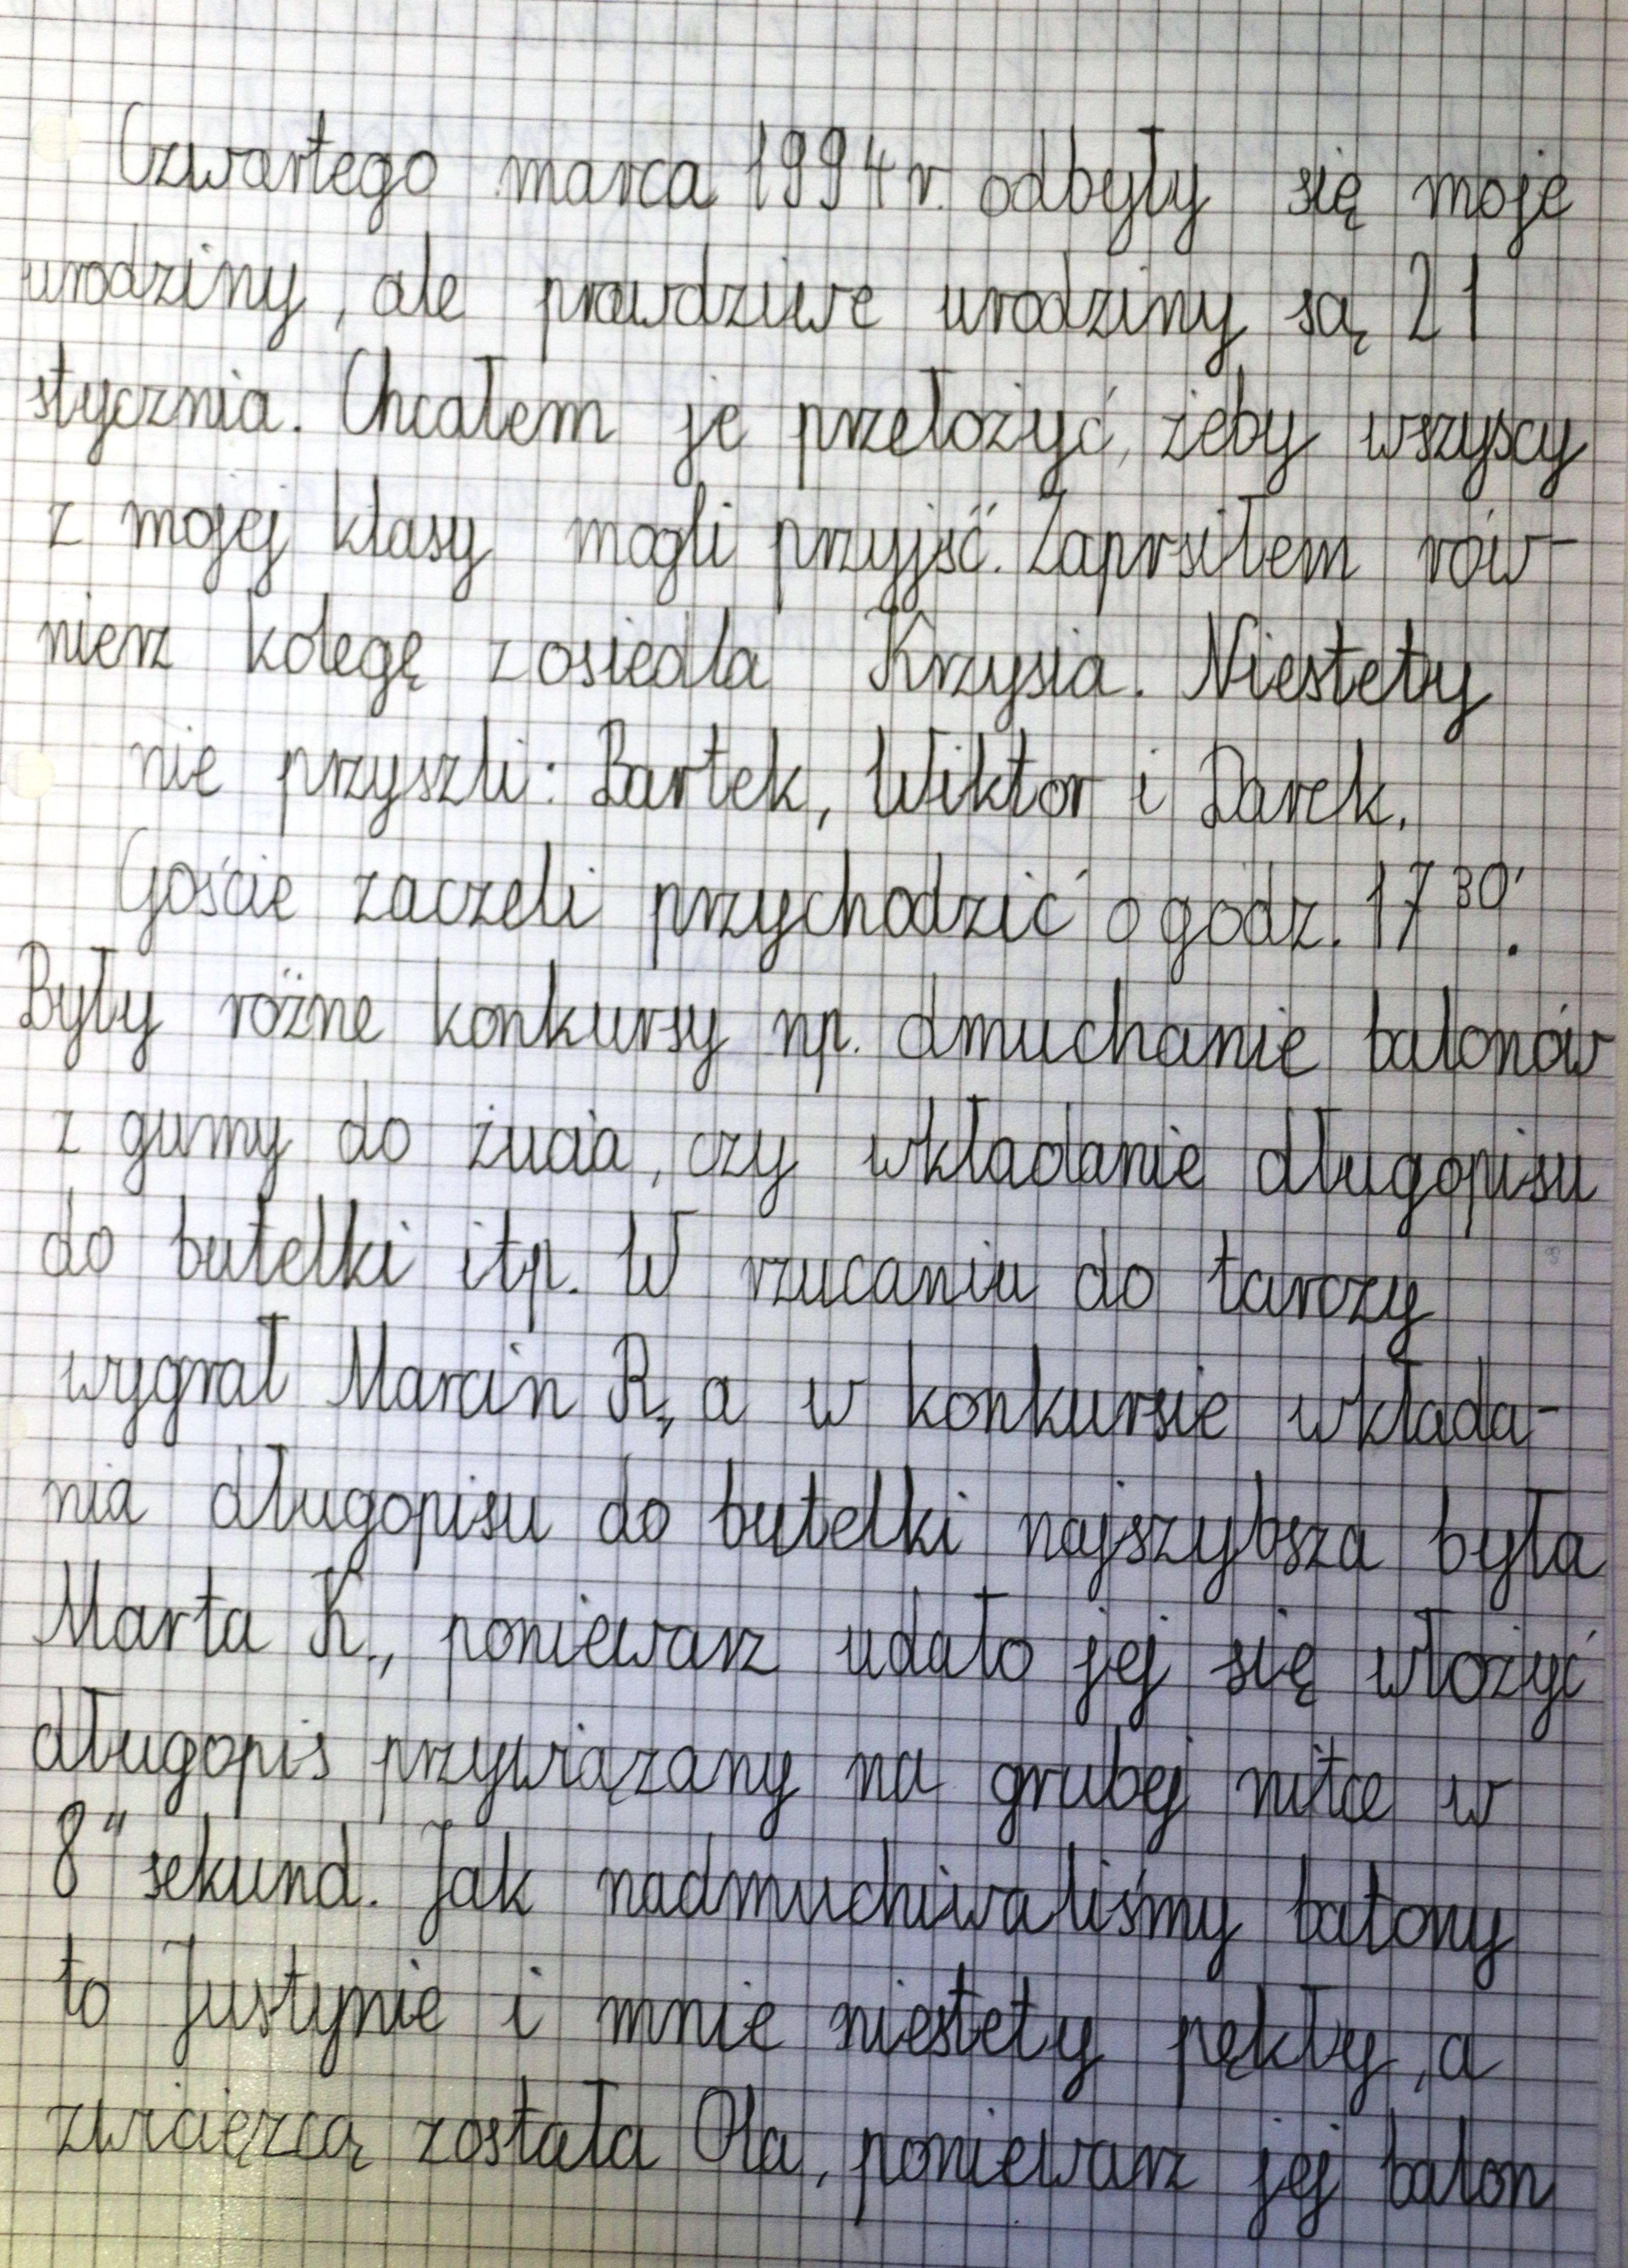 Czwartego marca 1994 r. odbyły się moje
urodziny, ale prawdziwe urodziny są 21
stycznia. Chcałem je przełożyć, żeby wszyscy
z mojej klasy mogli przyjść. Zaprsiłem rów-
nierz kolegę z osiedla Krzysia. Niestety
nie przyszli: Bartek, Wiktor i Darek.
Goście zaczeli przychodzić o godz. 17³⁰'.
Były różne konkursy np. dmuchanie balonów
z gumy do żucia, czy wkładanie długopisu
do butelki itp. W rzucaniu do tarczy
wygrał Marcin R., a w konkursie wkłada-
nia długopisu do butelki najszybsza była
Marta K., poniewarz udało jej się włożyć
długopis przywiązany na grubej nitce w
8" sekund. Jak nadmuchiwaliśmy balony
to Justynie i mnie niestety pękły, a
zwciężcą została Ola, poniewarz jej balon